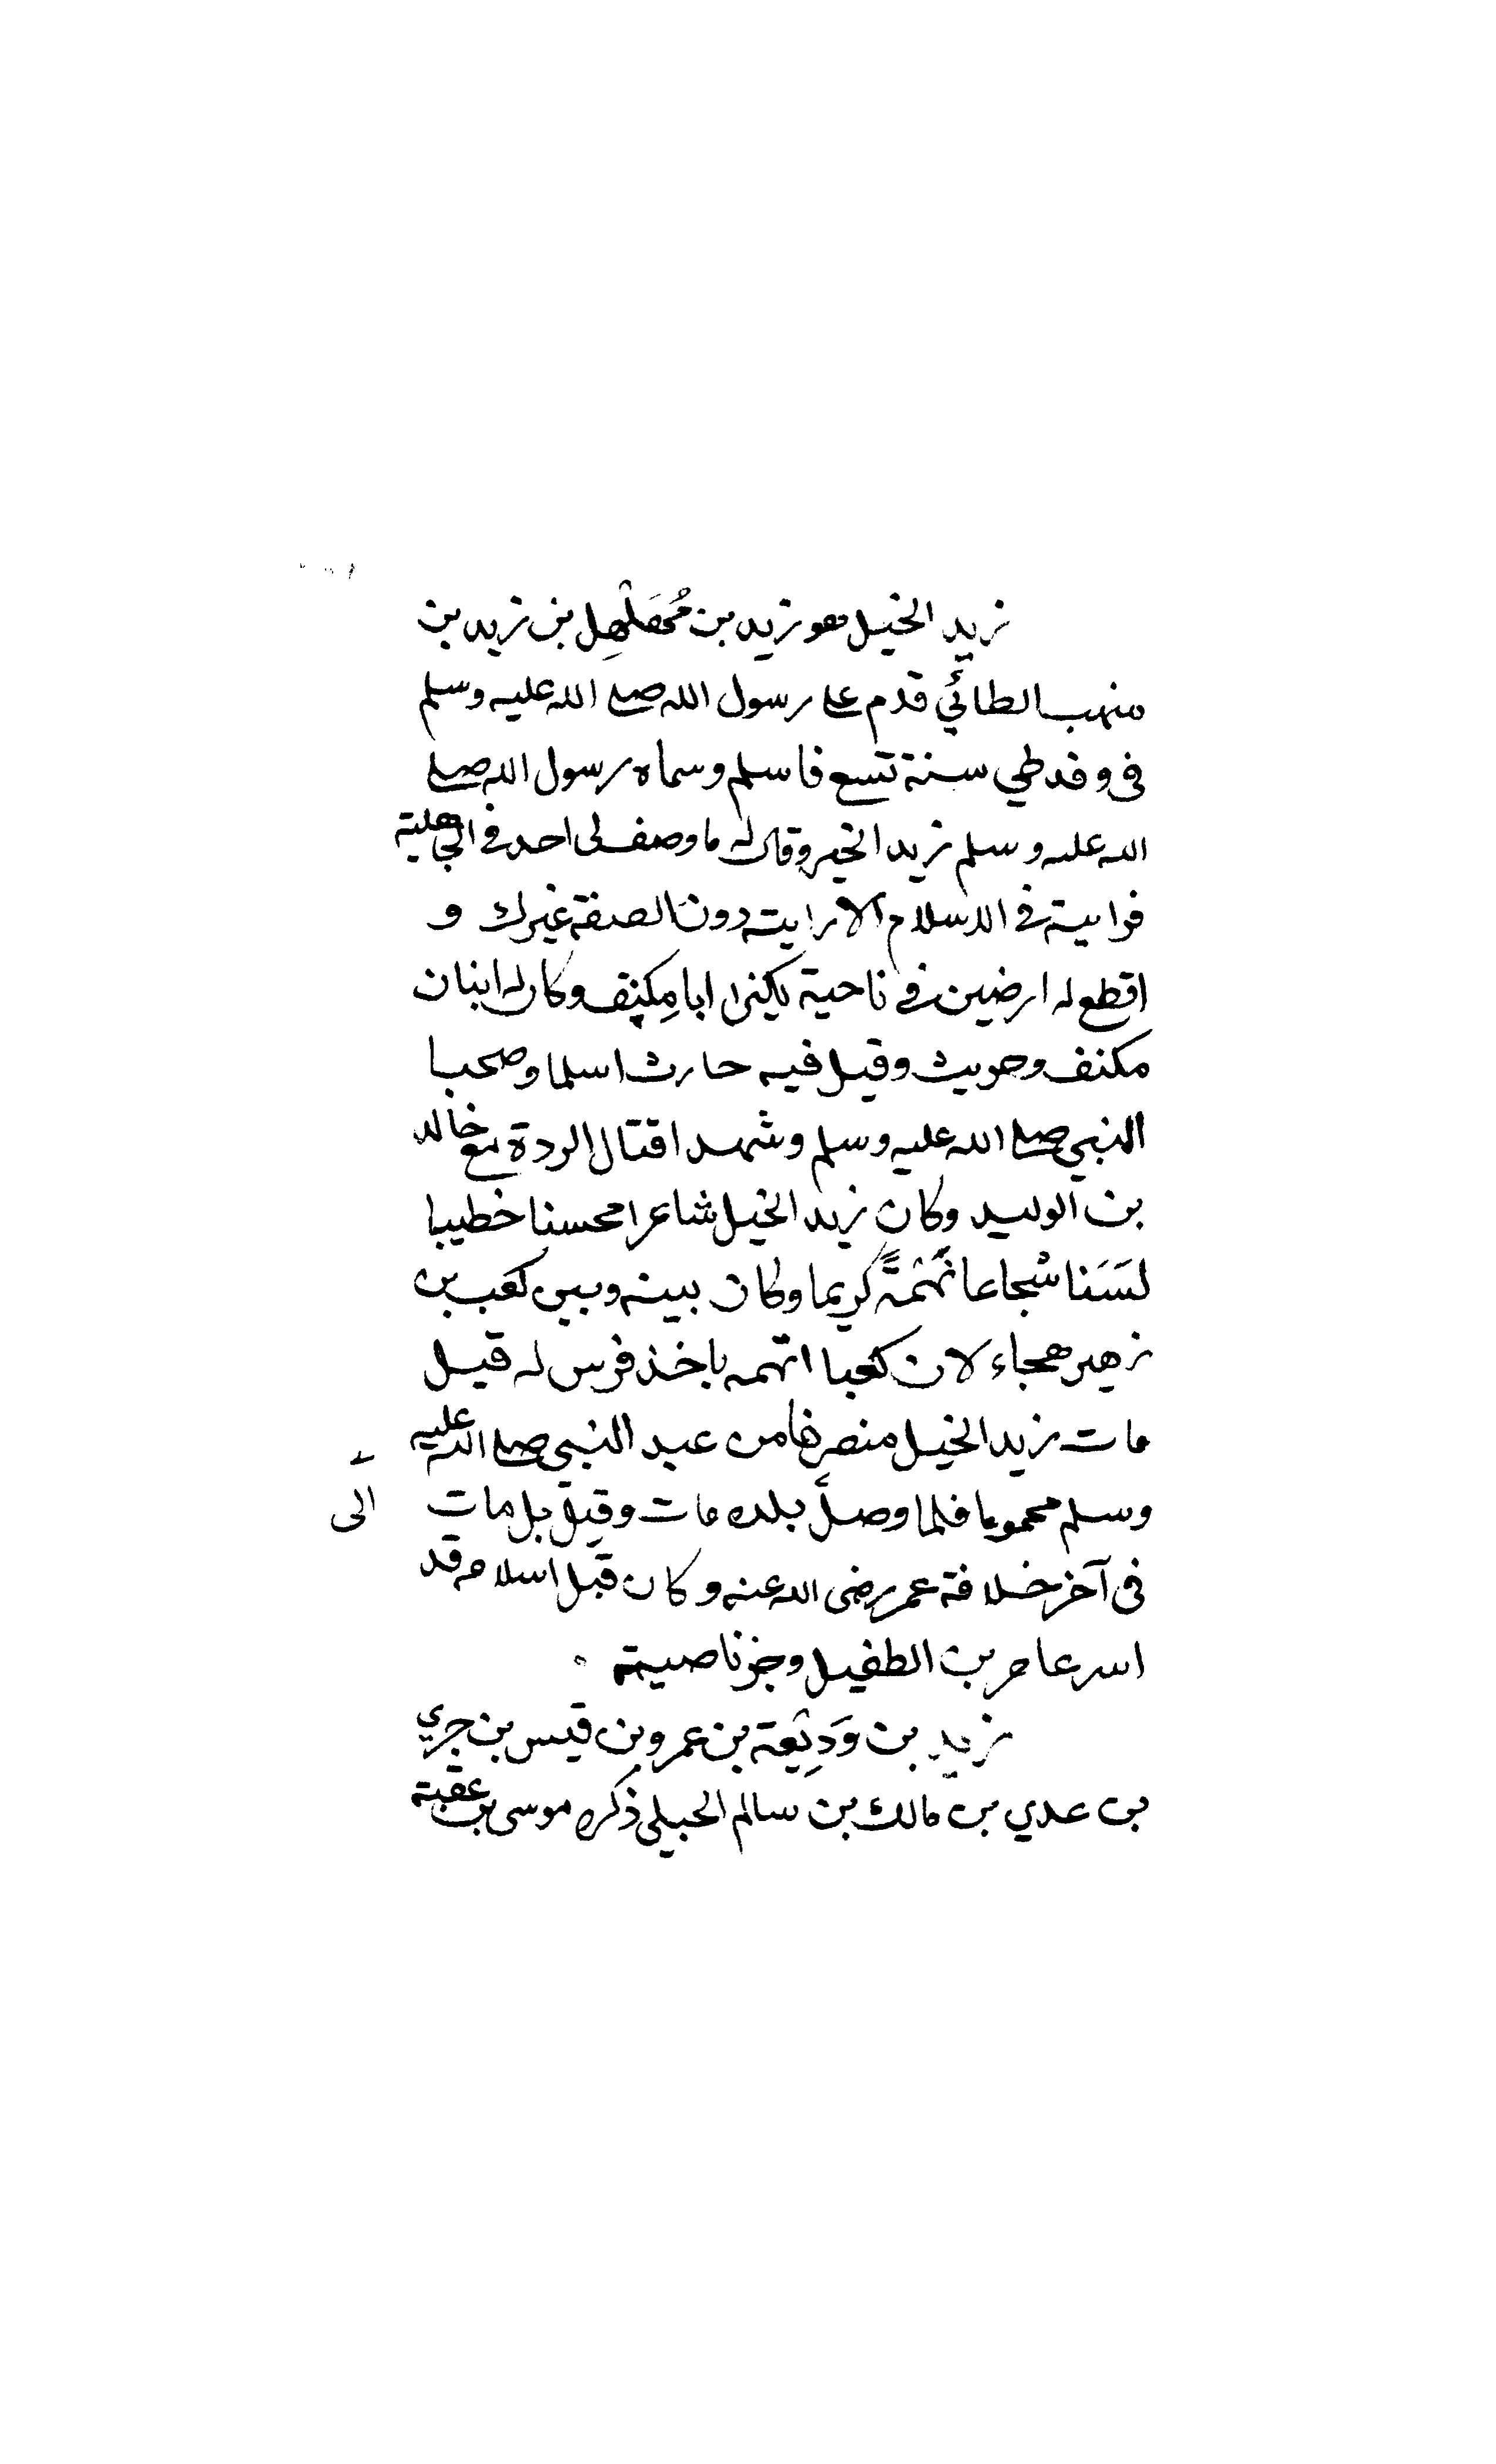 زيد الخيل هو زيد بن مُهَلْهِل بن زيد بن
منهب الطائي قدم على رسول الله صلى الله عليه وسلم
فى وفد طي سنة تسع فاسلم وسماه رسول الله صلى
الله عليه وسلم زيد الخير وقال له ما وصف لى احد فى الجاهلية
فرايته فى الاسلام الا رايته دون الصفة غيرك و
اقطع له ارضين فى ناحية يكنى ابا مِكنِف وكان له ابنان
مكنف وحريث وقيل فيه حارث اسلما وصحبا
النبي صلى الله عليه وسلم وشهدا قتال الردة مع خالد
بن الوليد وكان زيد الخيل شاعرا محسنا خطيبا
لَسَنا شجاعا بُهْمَةً كريما وكان بينه وبين كعب بن
زهير هجاء لان كعبا اتهمه باخذ فرس له قيل
مات زيد الخيل منصرفا من عند النبي صلى الله عليه
وسلم محموما فلما وصل بلده مات وقيل بل مات
الى
فى آخر خلافة عمر رضى الله عنه وكان قبل اسلامه قد
اسر عامر بن الطفيل وجز ناصيته
زيد بن وَدِيْعَة بن عمرو بن قيس بن جزي
بن عدي بن مالك بن سالم الحبلي ذكره موسى بن عقبة